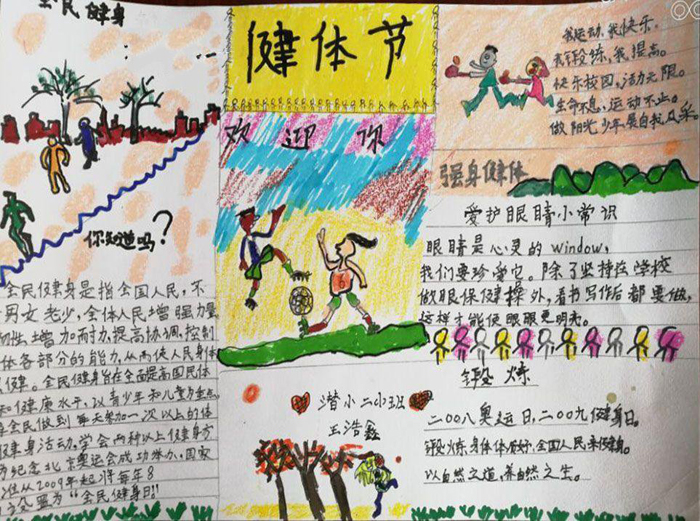 全民健身
你知道吗?
全民健身是指全国人民,不
男女老少,全体人民增强力量
韧性,增加耐力,提高协调,控制
体各部分的能力,从而使人民身体
健。全民健身旨在全面提高国民体
和健康水平,以青少年和儿童为重点
导全民做到每天参加一次以上的体
健身活动,学会两种以上健身方
为纪念北京奥运会成功举办,国家
准从2009年起,将每年8
设置为“全民健身日”
健体节
欢迎你
6
潜小二小班
王浩鑫
我运动,我快乐。
我锻炼,我提高。
快乐校园,活动无限。
生命不息,运动不止。
做阳光少年展自我风采。
强身健体
爱护眼睛小常识
眼睛是心灵的window,
我们要珍爱它。除了坚持在学校
做眼保健操外,看书写作后都要做,
这样才能使眼睛更明亮。
锻炼
二00八奥运日,二00九健身日。
锻炼身体体质好,全国人民来健身。
以自然之道,养自然之生。